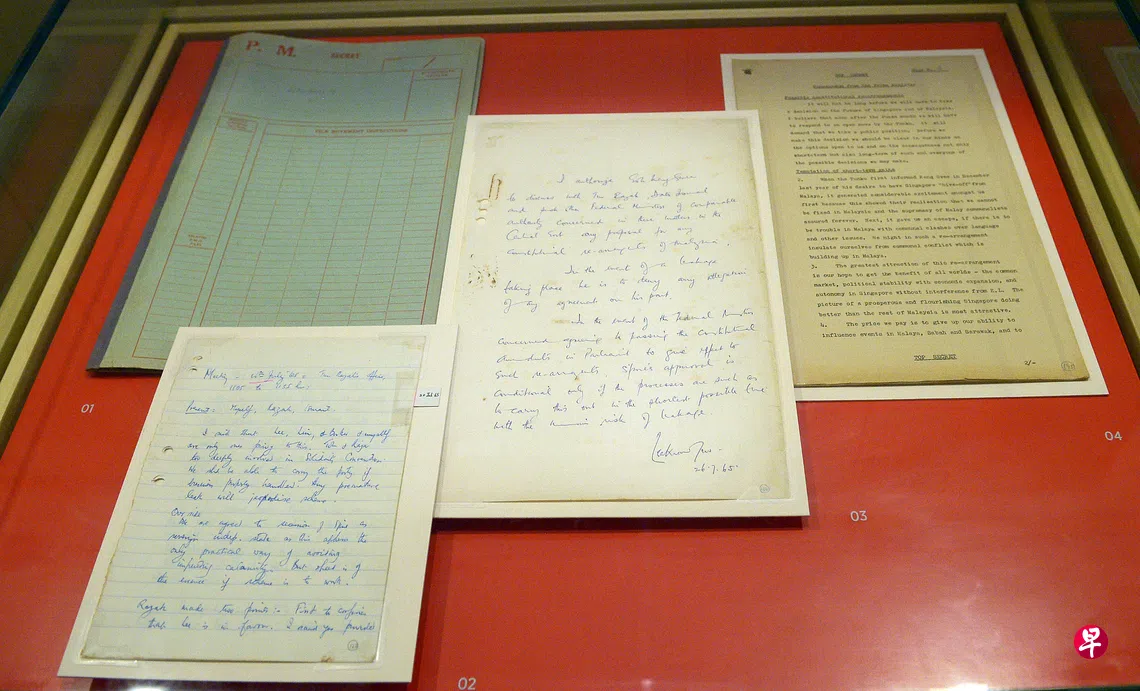 P. M.
SECRET
FILE MOVEMENT INSTRUCTIONS
01
Meeting - 20th July '65 - Tun Razak's Office,
Present: Myself, Razak, Ismail
I said that Lee, Lim, Barker & myself
are only ones privy to this, Toh & Raja
too deeply involved in Solidarity Convention.
We shd be able to carry the party if
business properly handled. Any premature
leak will jeopardise scheme.
Our side
We are agreed to secession of Spore as
sovereign indep. state as this affords the
only practical way of avoiding
impending calamity. But speed is of
the essence if scheme is to work.
Razak made two points:- First to confirm
that Lee is in favour. I said yes provided
02
20.7.65
I authorise Goh Keng Swee
to discuss with Tun Razak, Dato Ismail
and such other Federal Ministers of comparable
authority concerned in these matters in the
Central Govt any proposal for any
constitutional re-arrangements of Malaysia.
In the event of a leakage
taking place he is to deny any allegation
of any agreement on his part.
In the event of the Federal Ministers
concerned agreeing to passing the Constitutional
Amendments in Parliament to give effect to
such re-arrangements, S'pore's approval is
conditional only if the processes are such as
to carry this out in the shortest possible time
with the minimum risk of leakage.
26.7.65.
03
TOP SECRET
Memorandum from the Prime Minister
Possible constitutional re-arrangements
It will not be long before we will have to take
a decision on the future of Singapore out of Malaysia.
I believe that soon after the Tunku
to respond to an open move by the Tunku. It will
demand that we take a public position. Before we
make this decision we should be clear in our minds on
the options open to us and on the consequences not only
short-term but also long-term of each and everyone of
the possible decisions we may make.
Temptation of short-term gains
2. When the Tunku first informed Keng Swee in December
last year of his desire to have Singapore "hive-off" from
Malaya, it generated considerable excitement amongst us
first because this showed their realisation that we cannot
be fixed in Malaysia and the supremacy of Malay communalists
assured forever. Next, it gave us an escape, if there is to
be trouble in Malaya with communal clashes over language
and other issues. We might in such a re-arrangement
insulate ourselves from communal conflict which is
building up in Malaya.
3. The greatest attraction of this re-arrangement
is our hope to get the benefit of all worlds - the common
market, political stability with economic expansion, and
autonomy in Singapore without interference from K.L. The
picture of a prosperous and flourishing Singapore doing
better than the rest of Malaysia is most attractive.
4. The price we pay is to give up our ability to
influence events in Malaya, Sabah and Sarawak, and to
TOP SECRET
2/-
04
早